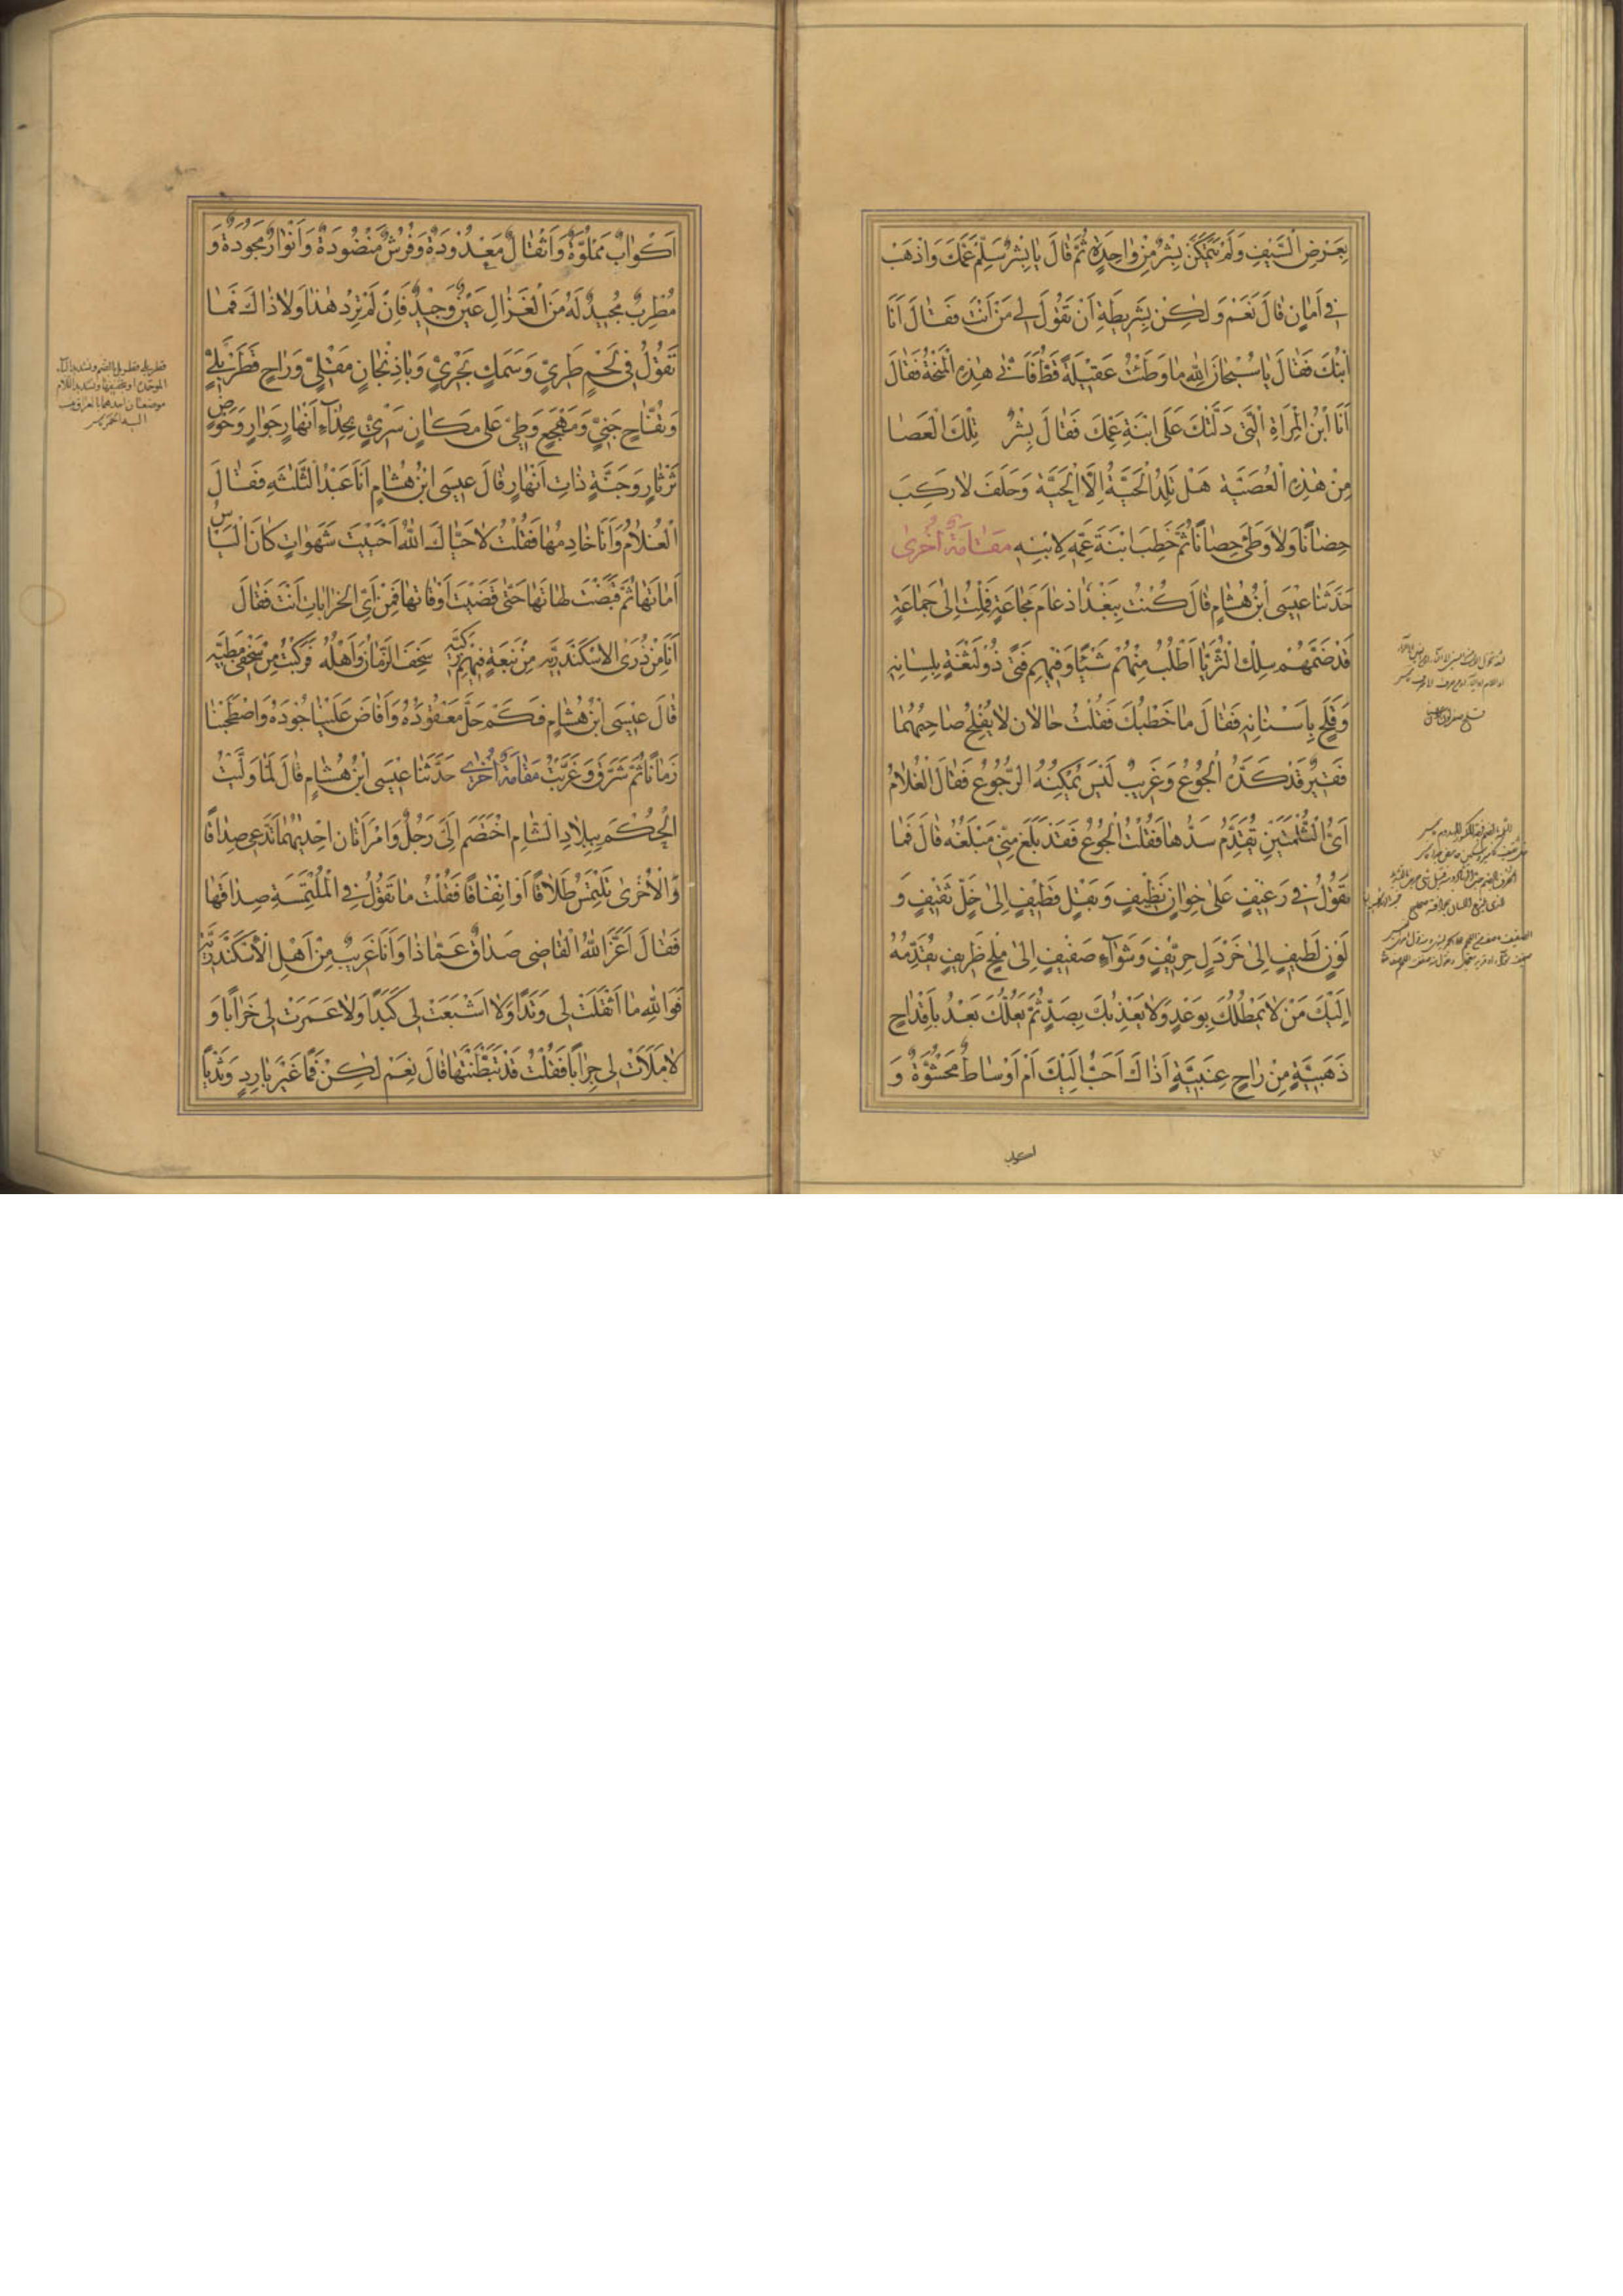 بِعَرْضِ السَّيْفِ وَلَمْ يَتَمَكَّنْ بِشْرٌ مِنْ وٰاحِدِهِ ثُمَّ قٰالَ يٰا بِشْرُ سَلِّمْ عَمَّكَ وَاذْهَبْ
فِي اَمٰانٍ قٰالَ نَعَمْ وَلٰكِنْ بِشَرِيطَةِ اَنْ تَقُولَ لِي مَنْ اَنْتَ فَقٰالَ اَنَا
ابْنُكَ فَقٰالَ يٰا سُبْحٰانَ اللهِ مٰا وَطَئْتُ عَقِيلَةً قَطُّ فَاَنّٰى هٰذِهِ الْمِنْحَةُ فَقٰالَ
اَنَا ابْنُ الْمَرْاَةِ الَّتِي دَلَّتْكَ عَلَى ابْنَةِ عَمِّكَ فَقٰالَ بِشْرٌ تِلْكَ الْعَصٰا
مِنْ هٰذِهِ الْعُصَيَّةِ هَلْ تَلِدُ الْحَيَّةُ اِلَّا الْحَيَّةَ وَحَلَفَ لٰا رَكِبَ
حِصٰانًا وَلٰا وَطِئَ حِصٰانًا ثُمَّ خَطَبَ ابْنَةَ عَمِّهِ لِابْنِهِ مَقٰامَةٌ اُخْرٰى
حَدَّثَنٰا عِيسَى ابْنُ هُشٰامٍ قٰالَ كُنْتُ بِبَغْدٰاذَ عٰامَ مَجٰاعَةٍ فَمِلْتُ اِلٰى جَمٰاعَةٍ
قَدْ ضَمَّهُمْ سِلْكُ الثُّرَيّٰا اَطْلُبُ مِنْهُمْ شَيْئًا وَفِيهِمْ فَتًى ذُو لَثْغَةٍ بِلِسٰانِهِ
وَفَلَجٍ بِاَسْنٰانِهِ فَقٰالَ مٰا خَطْبُكَ فَقُلْتُ حٰالٰانِ لٰا يُفْلِحُ صٰاحِبُهُمٰا
فَقِيرٌ قَدْ كَدَّهُ الْجُوعُ وَغَرِيبٌ لَيْسَ يُمْكِنُهُ الرُّجُوعُ فَقٰالَ الْغُلٰامُ
اَيُّ الثُّلْمَتَيْنِ تُقَدِّمُ سَدَّهٰا فَقُلْتُ الْجُوعُ فَقَدْ بَلَغَ مِنِّي مَبْلَغُهُ قٰالَ فَمٰا
تَقُولُ فِي رَغِيفٍ عَلٰى خِوٰانٍ نَظِيفٍ وَبَقْلٍ قَطِيفٍ اِلٰى خَلٍّ ثَقِيفٍ وَ
لَوْنٍ لَطِيفٍ اِلٰى خَرْدَلٍ حِرِّيفٍ وَشَوٰآءٍ صَفِيفٍ اِلٰى مِلْحٍ ظَرِيفٍ يُقَدِّمُهُ
اِلَيْكَ مَنْ لٰا يَمْطُلُكَ بِوَعْدٍ وَلٰا يُعَذِّبُكَ بِصَدٍّ ثُمَّ يَعُلُّكَ بَعْدُ بِاَقْدٰاحٍ
ذَهَبِيَّةٍ مِنْ رٰاحٍ عِنَبِيَّةٍ اَذٰاكَ اَحَبُّ اِلَيْكَ اَمْ اَوْسٰاطٌ مَحْشُوَّةٌ وَ
اَكْوٰابٌ مَمْلُوَّةٌ وَاَنْقٰالٌ مَعْدُودَةٌ وَفُرُشٌ مَنْضُودَةٌ وَاَنْوٰارٌ مُجَوَّدَةٌ وَ
مُطْرِبٌ مُجِيدٌ لَهُ مِنَ الْغَزٰالِ عَيْنٌ وَجِيدٌ فَاِنْ لَمْ تُرِدْ هٰذٰا وَلٰا ذٰاكَ فَمٰا
تَقُولُ فِي لَحْمٍ طَرِيٍّ وَسَمَكٍ بَحْرِيٍّ وَبٰاذِنْجٰانٍ مَقْلِيٍّ وَرٰاحٍ قُطْرَبُّلِيٍّ
وَتُفّٰاحٍ جَنِيٍّ وَمَهْجَعٍ وَطِيٍّ عَلٰى مَكٰانٍ سَرِيٍّ بِحِذٰآءِ اَنْهٰارٍ جَوٰارٍ وَحَوْضٍ
ثَرْثٰارٍ وَجَنَّةٍ ذٰاتِ اَنْهٰارٍ قٰالَ عِيسَى ابْنُ هُشٰامٍ اَنَا عَبْدُ الثَّلٰثَةِ فَقٰالَ
الْغُلٰامُ وَاَنَا خٰادِمُهٰا فَقُلْتُ لٰا حَيّٰاكَ اللهُ اَحْيَيْتَ شَهَوٰاتٍ كٰانَ الْيَاْسُ
اَمٰاتَهٰا ثُمَّ قَبَضْتَ لَهٰاتَهٰا حَتّٰى قَضَيْتَ اَوْقٰاتَهٰا فَمِنْ اَيِّ الْخَرٰابٰاتِ اَنْتَ فَقٰالَ
اَنَا مِنْ ذُوِي الْاِسْكَنْدَرِيَّهْ مِنْ نَبْعَةٍ فِيهِمْ زَكِيَّهْ سَخِفَ الزَّمٰانُ وَاَهْلُهُ فَرَكِبْتُ مِنْ سُخْفِي مَطِيَّهْ
قٰالَ عِيسَى ابْنُ هُشٰامٍ فَكَمْ حَلَّ مَعْقُودُهُ وَاَفٰاضَ عَلَيْنٰا جُودُهُ وَاصْطَحَبْنٰا
زَمٰانًا ثُمَّ شَرَّقَ وَغَرَّبْتُ مَقٰامَةٌ اُخْرٰى حَدَّثَنٰا عِيسَى ابْنُ هُشٰامٍ قٰالَ لَمّٰا وَلِّيتُ
الْحُكْمَ بِبِلٰادِ الشّٰامِ اخْتَصَمَ اِلَيَّ رَجُلٌ وَامْرَاَتٰانِ اِحْدٰيهُمٰا تَدَّعِي صِدٰاقًا
وَالْاُخْرٰى تَلْتَمِسُ طَلٰاقًا اَوْ اِنْفٰاقًا فَقُلْتُ مٰا تَقُولُ فِي الْمُلْتَمِسَةِ صِدٰاقَهٰا
فَقٰالَ اَعَزَّ اللهُ الْقٰاضِي صَدٰاقٌ عَمّٰاذٰا وَاَنَا غَرِيبٌ مِنْ اَهْلِ الْاِسْكَنْدَرِيَّةِ
فَوَاللهِ مٰا اَثْقَلَتْ لِي وَتَدًا وَلٰا اَشْبَعَتْ لِي كَبَدًا وَلٰا عَمَرَتْ لِي خَرٰابًا وَ
لٰا مَلَاَتْ لِي جِرٰابًا فَقُلْتُ قَدْ تَبَطَّنْتَهٰا قٰالَ نِعَمْ لٰكِنْ فَمًا غَيْرَ بٰارِدٍ وَثَدْيًا